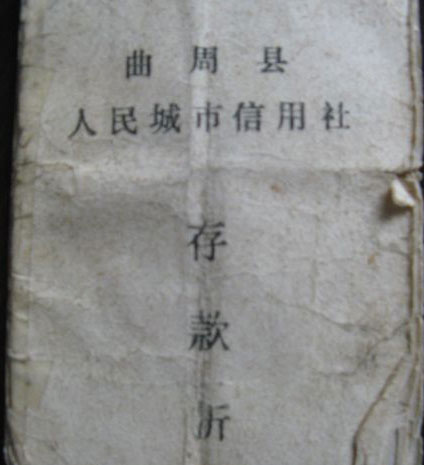 曲周县
人民城市信用社
存
款
折